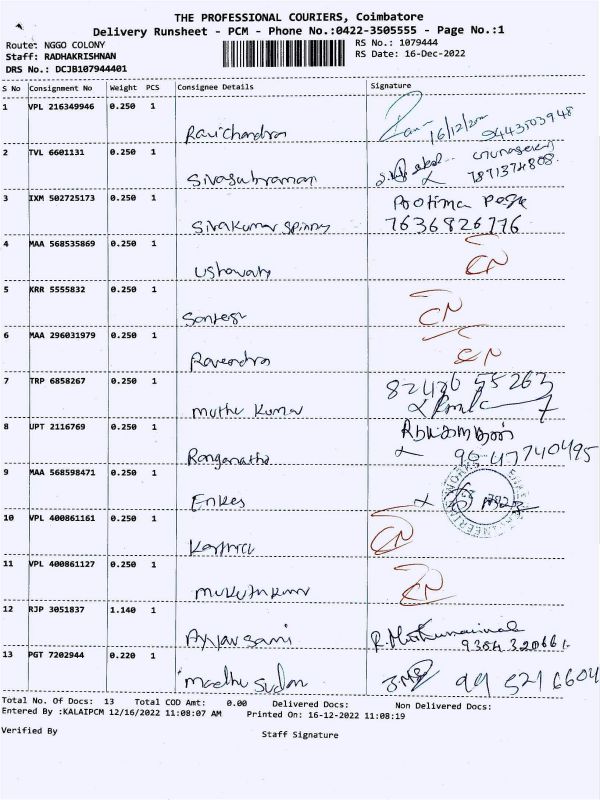 THE PROFESSIONAL COURIERS, Coimbatore
Delivery Runsheet - PCM - Phone No.:0422-3505555 - Page No.:1
Route: NGGO COLONY
RS No.: 1079444
Staff: RADHAKRISHNAN
RS Date: 16-Dec-2022
DRS No.: DCJB107944401
S No Consignment No Weight PCS Consignee Details Signature
1 VPL 216349946 0.250 1 Ravichandra 16/12/2022 9443503948
2 TVL 6601131 0.250 1 Sivasubramani 7871374808.
3 IXM 502725173 0.250 1 Sivakumar Spinny 7636826776
4 MAA 568535869 0.250 1 CN
5 KRR 5555832 0.250 1 Santosh CN
6 MAA 296031979 0.250 1 Raveendra CN
7 TRP 6858267 0.250 1 Muthu Kumar
8 UPT 2116769 0.250 1 Ranganatha 9647740495
9 MAA 568598471 0.250 1 Enkes
10 VPL 400861161 0.250 1 CN
11 VPL 400861127 0.250 1 CN
12 RJP 3051837 1.140 1 Ayyavsami
13 PGT 7202944 0.220 1 Madhu Sudan 99 5216604
Total No. Of Docs: 13 Total COD Amt: 0.00 Delivered Docs: Non Delivered Docs:
Entered By :KALAIPCM 12/16/2022 11:08:07 AM Printed On: 16-12-2022 11:08:19
Verified By
Staff Signature